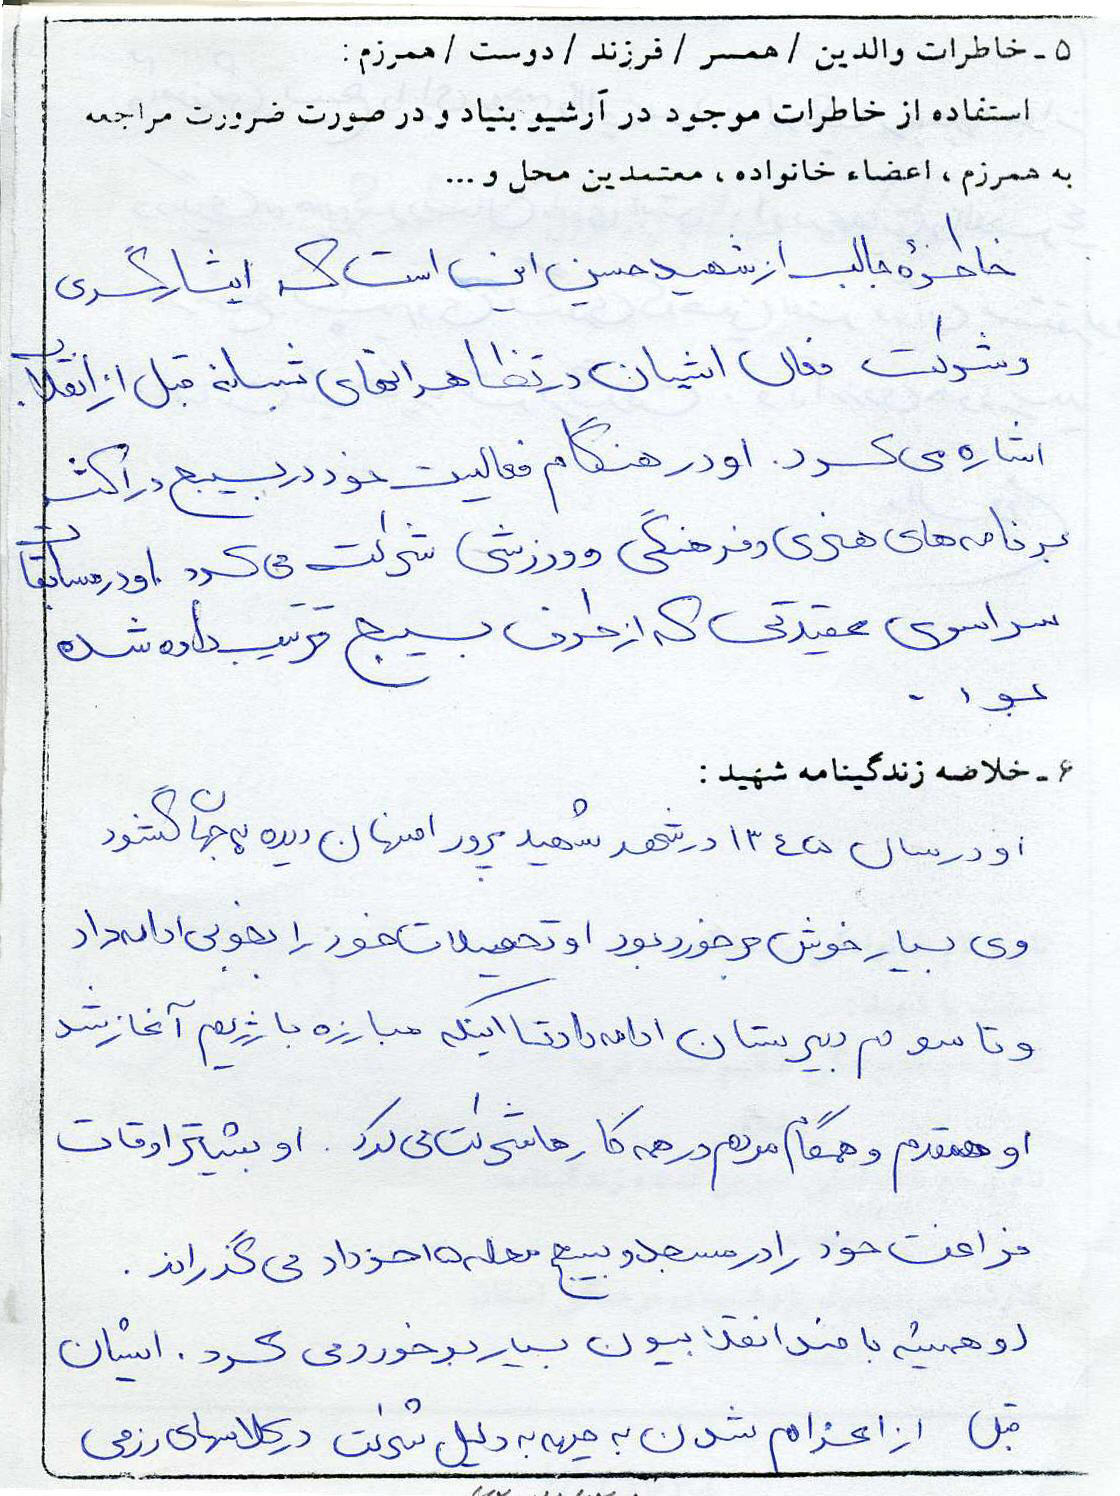 ۵ ـ خاطرات والدین / همسر / فرزند / دوست / همرزم :
استفاده از خاطرات موجود در آرشیو بنیاد و در صورت ضرورت مراجعه
به همرزم ، اعضاء خانواده ، معتمدین محل و ...
خاطرهٔ جالب از شهید حسین این است که ایثارگری
و شرکت فعال ایشان در تظاهراتهای شبانه قبل از انقلاب
اشاره می کرد. او در هنگام فعالیت خود در بسیج در اکثر
برنامه های هنری و فرهنگی و ورزشی شرکت می کرد . او در مسابقات
سراسری عقیدتی که از طرف بسیج ترتیب داده شده
بود .
۶ ـ خلاصه زندگینامه شهید :
او در سال ۱۳۴۵ در شهر شهید پرور اصفهان دیده به جهان گشود
وی بسیار خوش برخورد بود او تحصیلات خود را بخوبی ادامه داد
و تا سوم دبیرستان ادامه داد تا اینکه مبارزه با رژیم آغاز شد
او همقدم و همگام مردم در همه کارها شرکت می کرد . او بیشتر اوقات
فراغت خود را در مسجد و بسیج محله ۱۵ خرداد می گذراند .
او همیشه با ضد انقلابیون بسیار برخورد می کرد . ایشان
قبل از اعزام شدن به جبهه به دلیل شرکت در کلاسهای رزمی